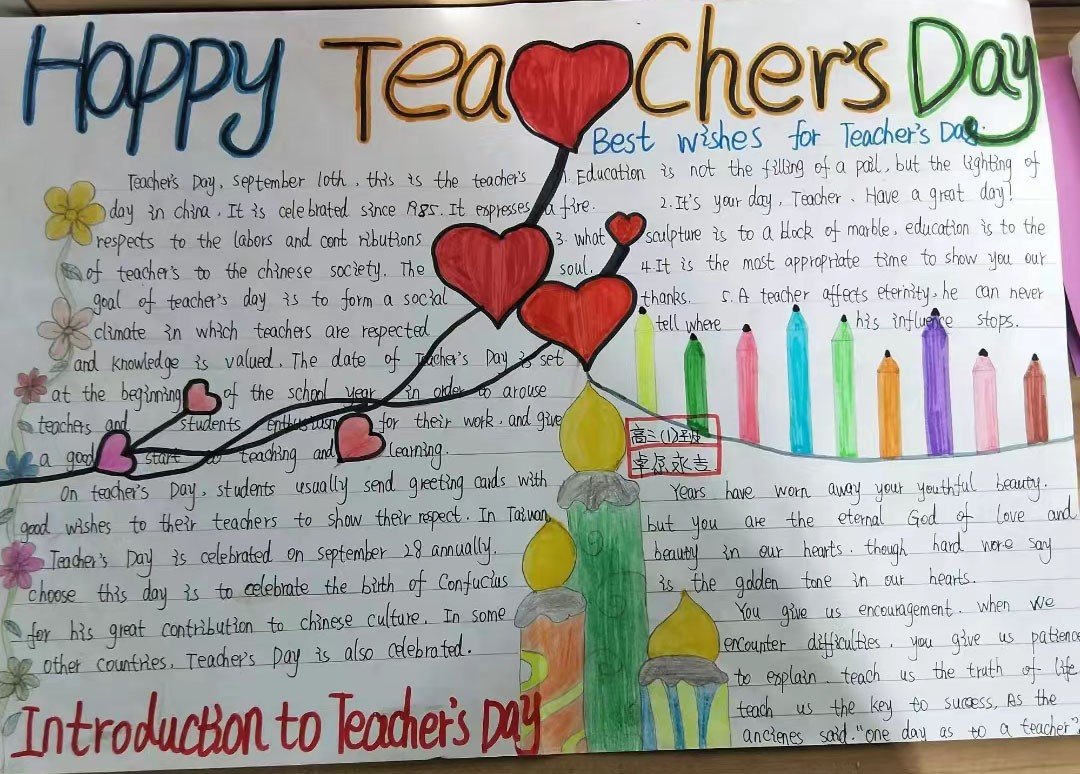 Happy Teacher's Day
Best wishes for Teacher's Day.
Teacher's Day, september 10th, this is the teacher's
day in china. It is celebrated since 1985. It expresses
respects to the labors and cont ributions
of teacher's to the chinese society. The
goal of teacher's day is to form a social
climate in which teachers are respected
and knowledge is valued. The date of Teacher's Day is set
at the beginning of the school year in order to arouse
teachers and students enthusiasm for their work, and give
a good start to teaching and learning.
On teacher's Day, students usually send greeting cards with
good wishes to their teachers to show their respect. In Taiwan,
Teacher's Day is celebrated on september 28 annually.
choose this day is to celebrate the birth of Confucius
for his great contribution to chinese culture. In some
other countries, Teacher's Day is also celebrated.
Introduction to Teacher's Day
1. Education is not the filling of a pail, but the lighting of
a fire. 2. It's your day, Teacher. Have a great day!
3. what sculpture is to a block of marble, education is to the
soul. 4. It is the most appropriate time to show you our
thanks. 5. A teacher affects eternity, he can never
tell where his influence stops.
高二(1)班
卓 永吉
Years have worn away your youthful beauty.
but you are the eternal God of love and
beauty in our hearts. though hard wore say
is the golden tone in our hearts.
You give us encouragement. when we
encounter difficulties. you give us patience
to explain. teach us the truth of life
teach us the key to success, As the
ancienes said. "one day as to a teacher